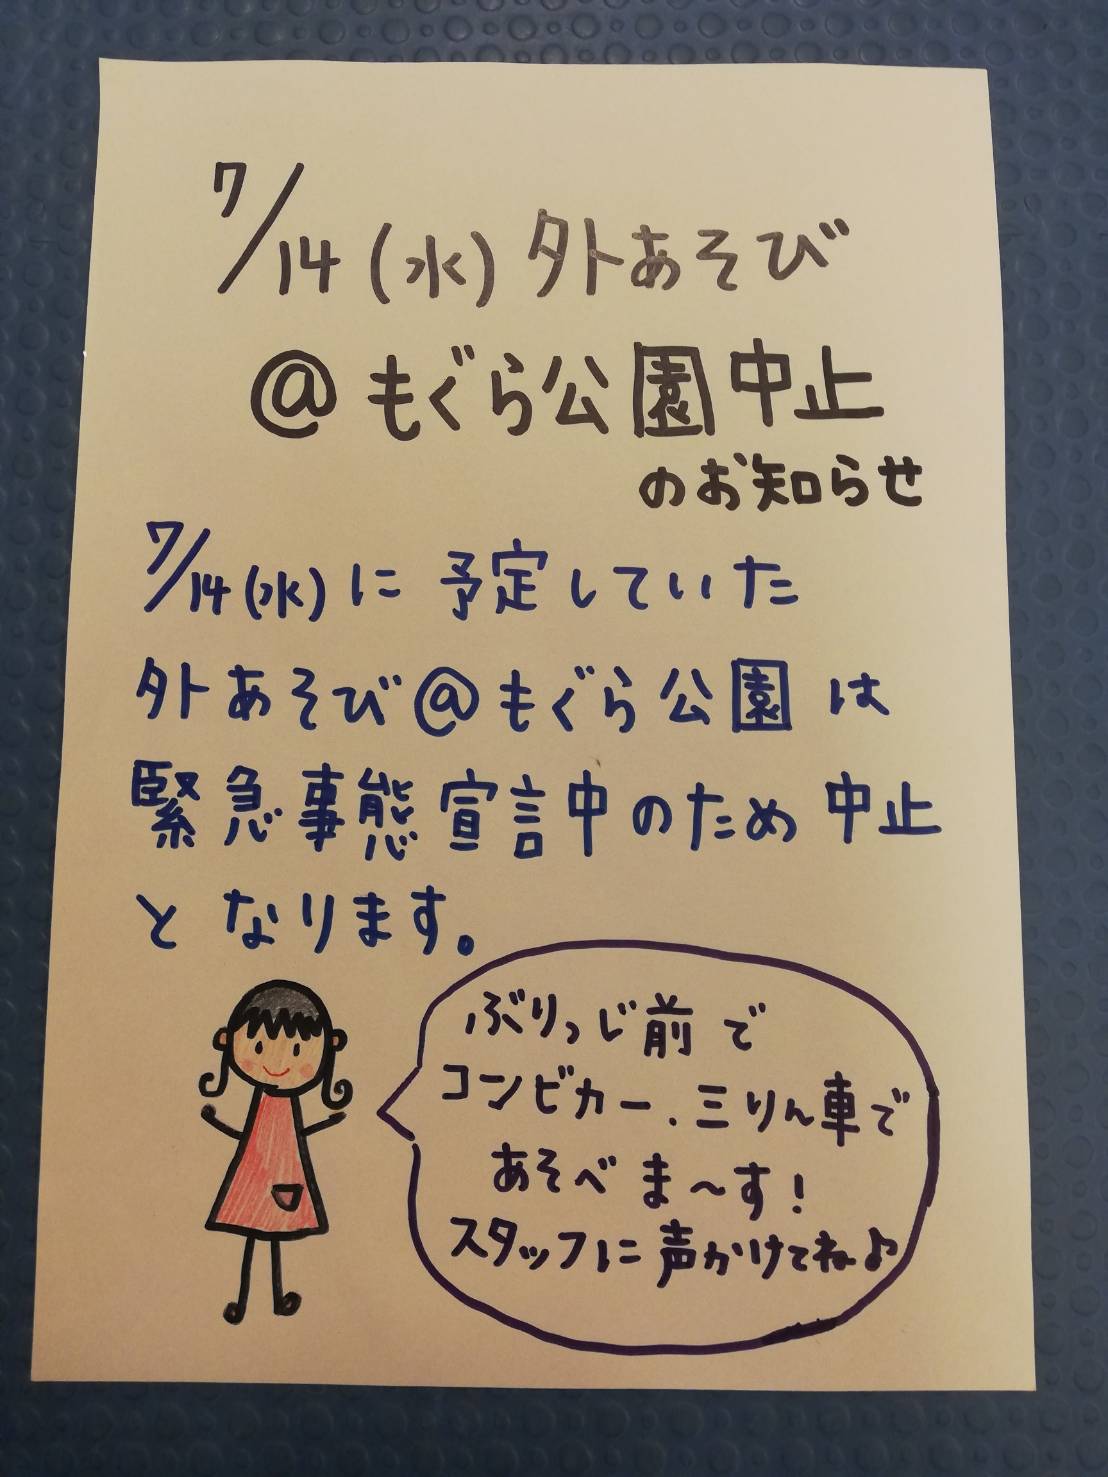 7/14(水)外あそび
@もぐら公園中止
のお知らせ
7/14(水)に予定していた
外あそび@もぐら公園は
緊急事態宣言中のため中止
となります。
ぶりっじ前で
コンビカー、三りん車で
あそべま〜す!
スタッフに声かけてね♪